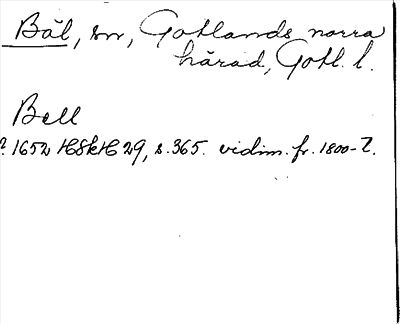 Bäl, sn, Gotlands norra
härad, Gotl. l.
Bell
? 1652 HSkH 29, s. 365. vidim. fr. 1800-t.